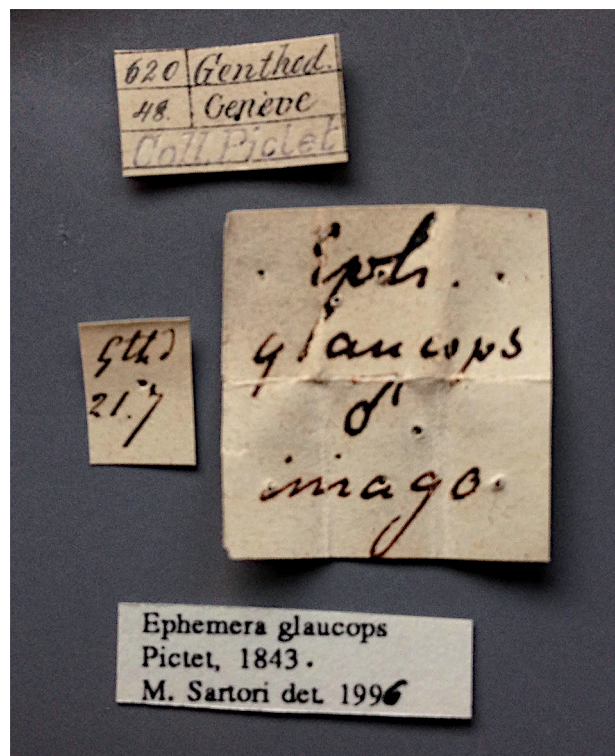 620 Genthod.
48. Genève
Coll. Pictet
Eph.
glaucops
♂.
imago.
Gthd
21.7
Ephemera glaucops
Pictet, 1843.
M. Sartori det. 1996